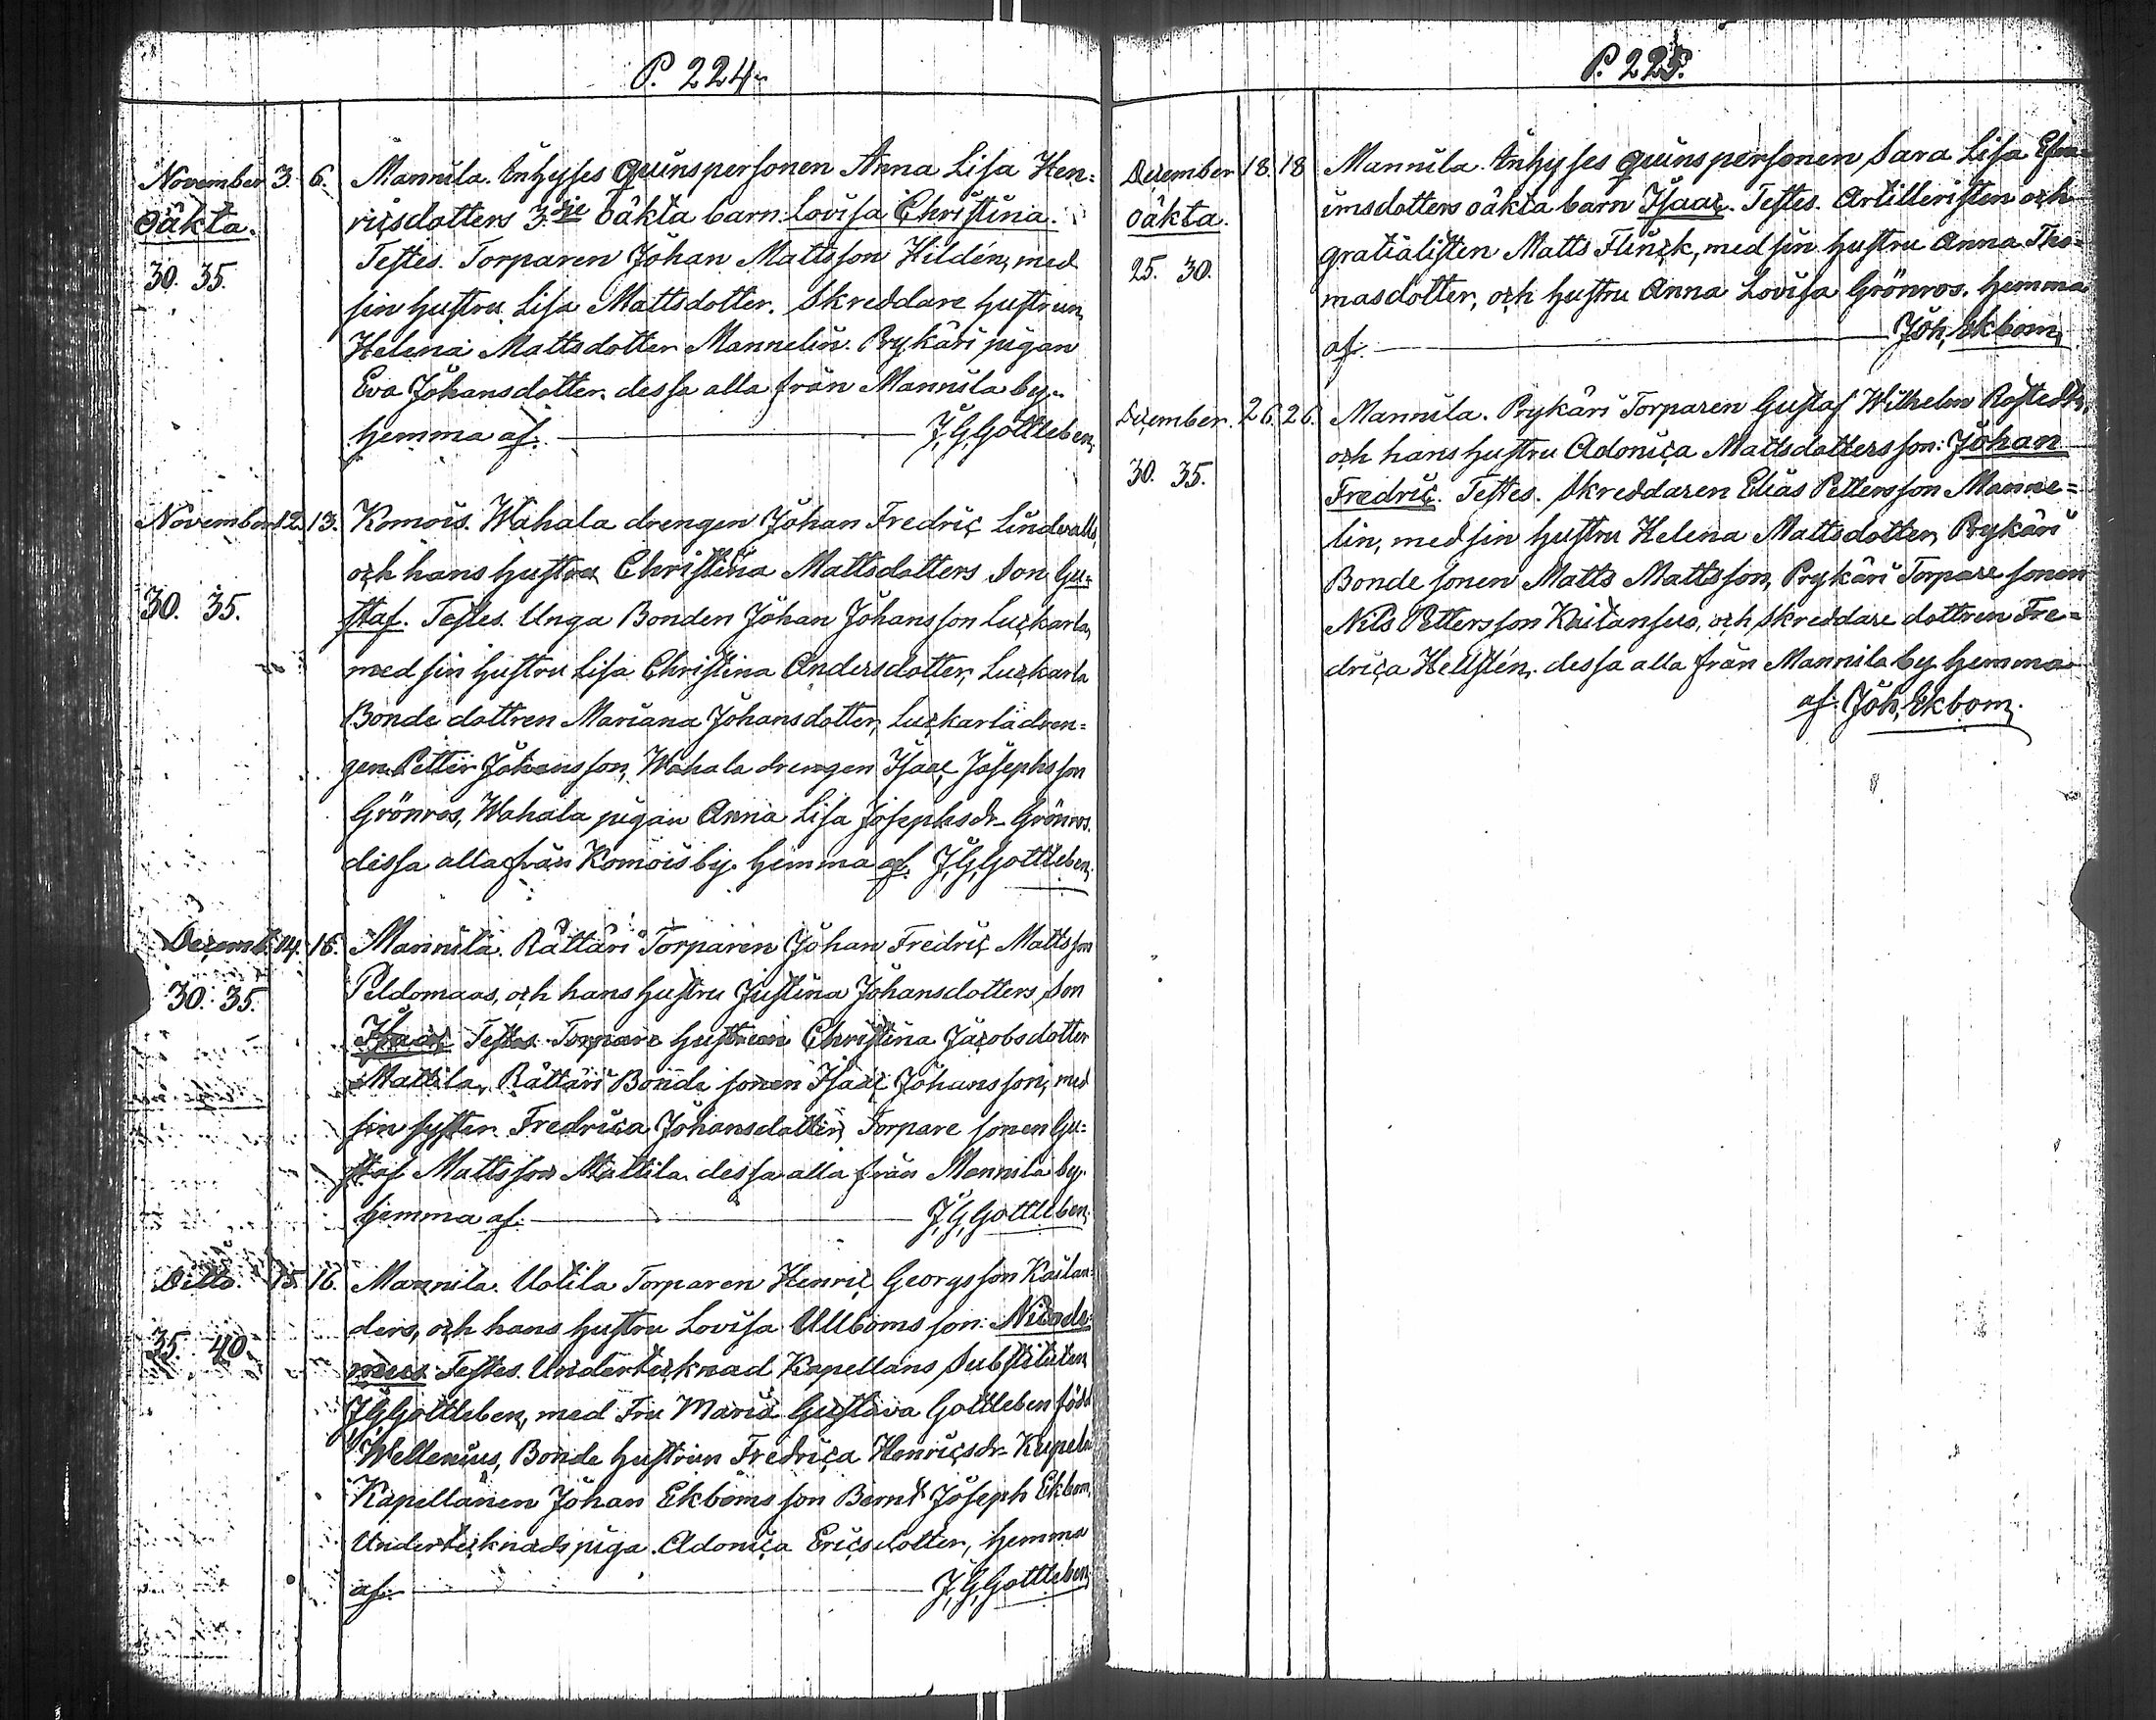 P. 224.
November 3. 6. Mannila. Inhyses quinspersonen Anna Lisa Hen=
oäkta. ricsdotters 3.dje oäkta barn Lovisa Christina.
30. 35. Testes. Torparen Johan Mattsson Hildén, med
sin hustru Lisa Mattsdotter. Skreddare hustrun,
Helena Mattsdotter Mannelin. Prykäri pigan
Eva Johansdotter. dessa alla från Mannila by.
hemma af. J,G,Gottleben,
November 12. 13. Komois. Wahala drengen Johan Fredric Lindwalls,
och hans hustru Christina Mattsdotters Son Gu=
30. 35. staf. Testes. Unga Bonden Johan Johansson Luckarla,
med sin hustru Lisa Christina Andersdotter, Luckarla
Bonde dottren Mariana Johansdotter, Luckarla dren=
gen Petter Johansson, Wahala drengen Isaac Josephsson
Grönros, Wahala pigan Anna Lisa Josephsdr. Grönros.
dessa alla från Komois by. hemma af. J,G,Gottleben,
Decemb. 14. 15. Mannila. Rättäri Torparen Johan Fredric Mattsson
30. 35. Peldomaas, och hans hustru Justina Johansdotters Son
Isaac Testes. Torpare hustrun Christina Jacobsdotter
Mattila, Rättäri Bonde sonen Isaac Johansson, med
sin syster Fredrica Johansdotter, Torpare sonen Gu=
staf Mattsson Mattila. dessa alla från Mannila by.
hemma af. J,G,Gottleben,
Ditto. 15. 16. Mannila. Uotila Torparen Henric Georgsson Kailan=
ders, och hans hustru Lovisa Ullboms son: Nicode=
35. 40. mus. Testes. Undertecknad Kapellans Substituten
J,G,Gottleben, med Fru Maria Gustava Gottleben född
Wellenius, Bonde hustrun Fredrica Henricsdr.
Kapellanen Johan Ekboms son Bernd Joseph Ekbom,
Undertecknads piga Adonica Ericsdotter, hemma
af. J,G,Gottleben,
P. 225.
December 18. 18 Mannila. Inhyses quinspersonen Sara Lisa Efra=
oäkta. imsdotters oäkta barn Isaac. Testes. Artilleristen och
25. 30. gratialisten Matts Flinck, med sin hustru Anna Tho=
masdotter, och hustru Anna Lovisa Grönros. hemma
af. Joh, Ekbom,
December. 26. 26. Mannila. Prykäri Torparen Gustaf Wilhelm Rostedts,
och hans hustru Adonica Mattsdotters son: Johan
30. 35. Fredric. Testes. Skreddaren Elias Pettersson Manne=
lin, med sin hustru Helena Mattsdotter, Prykäri
Bonde sonen Matts Mattsson, Prykäri Torpare sonen
Nils Pettersson och Skreddare dottren Fre=
drica Hellstén. dessa alla från Mannila by hemma
af. Joh, Ekbom,